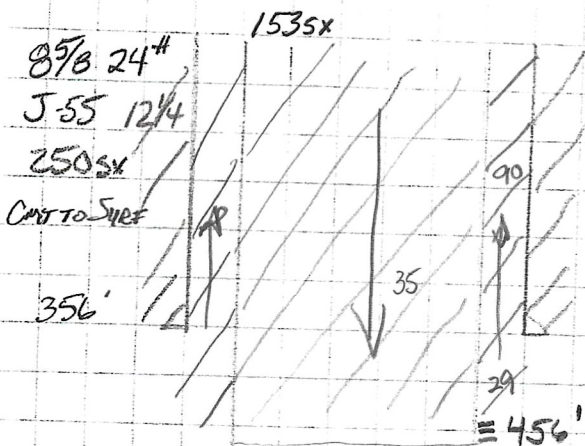 153sx
8 5/8 24#
J-55 12 1/4
250sx
CMT TO SURF
90
35
356'
29
= 456'